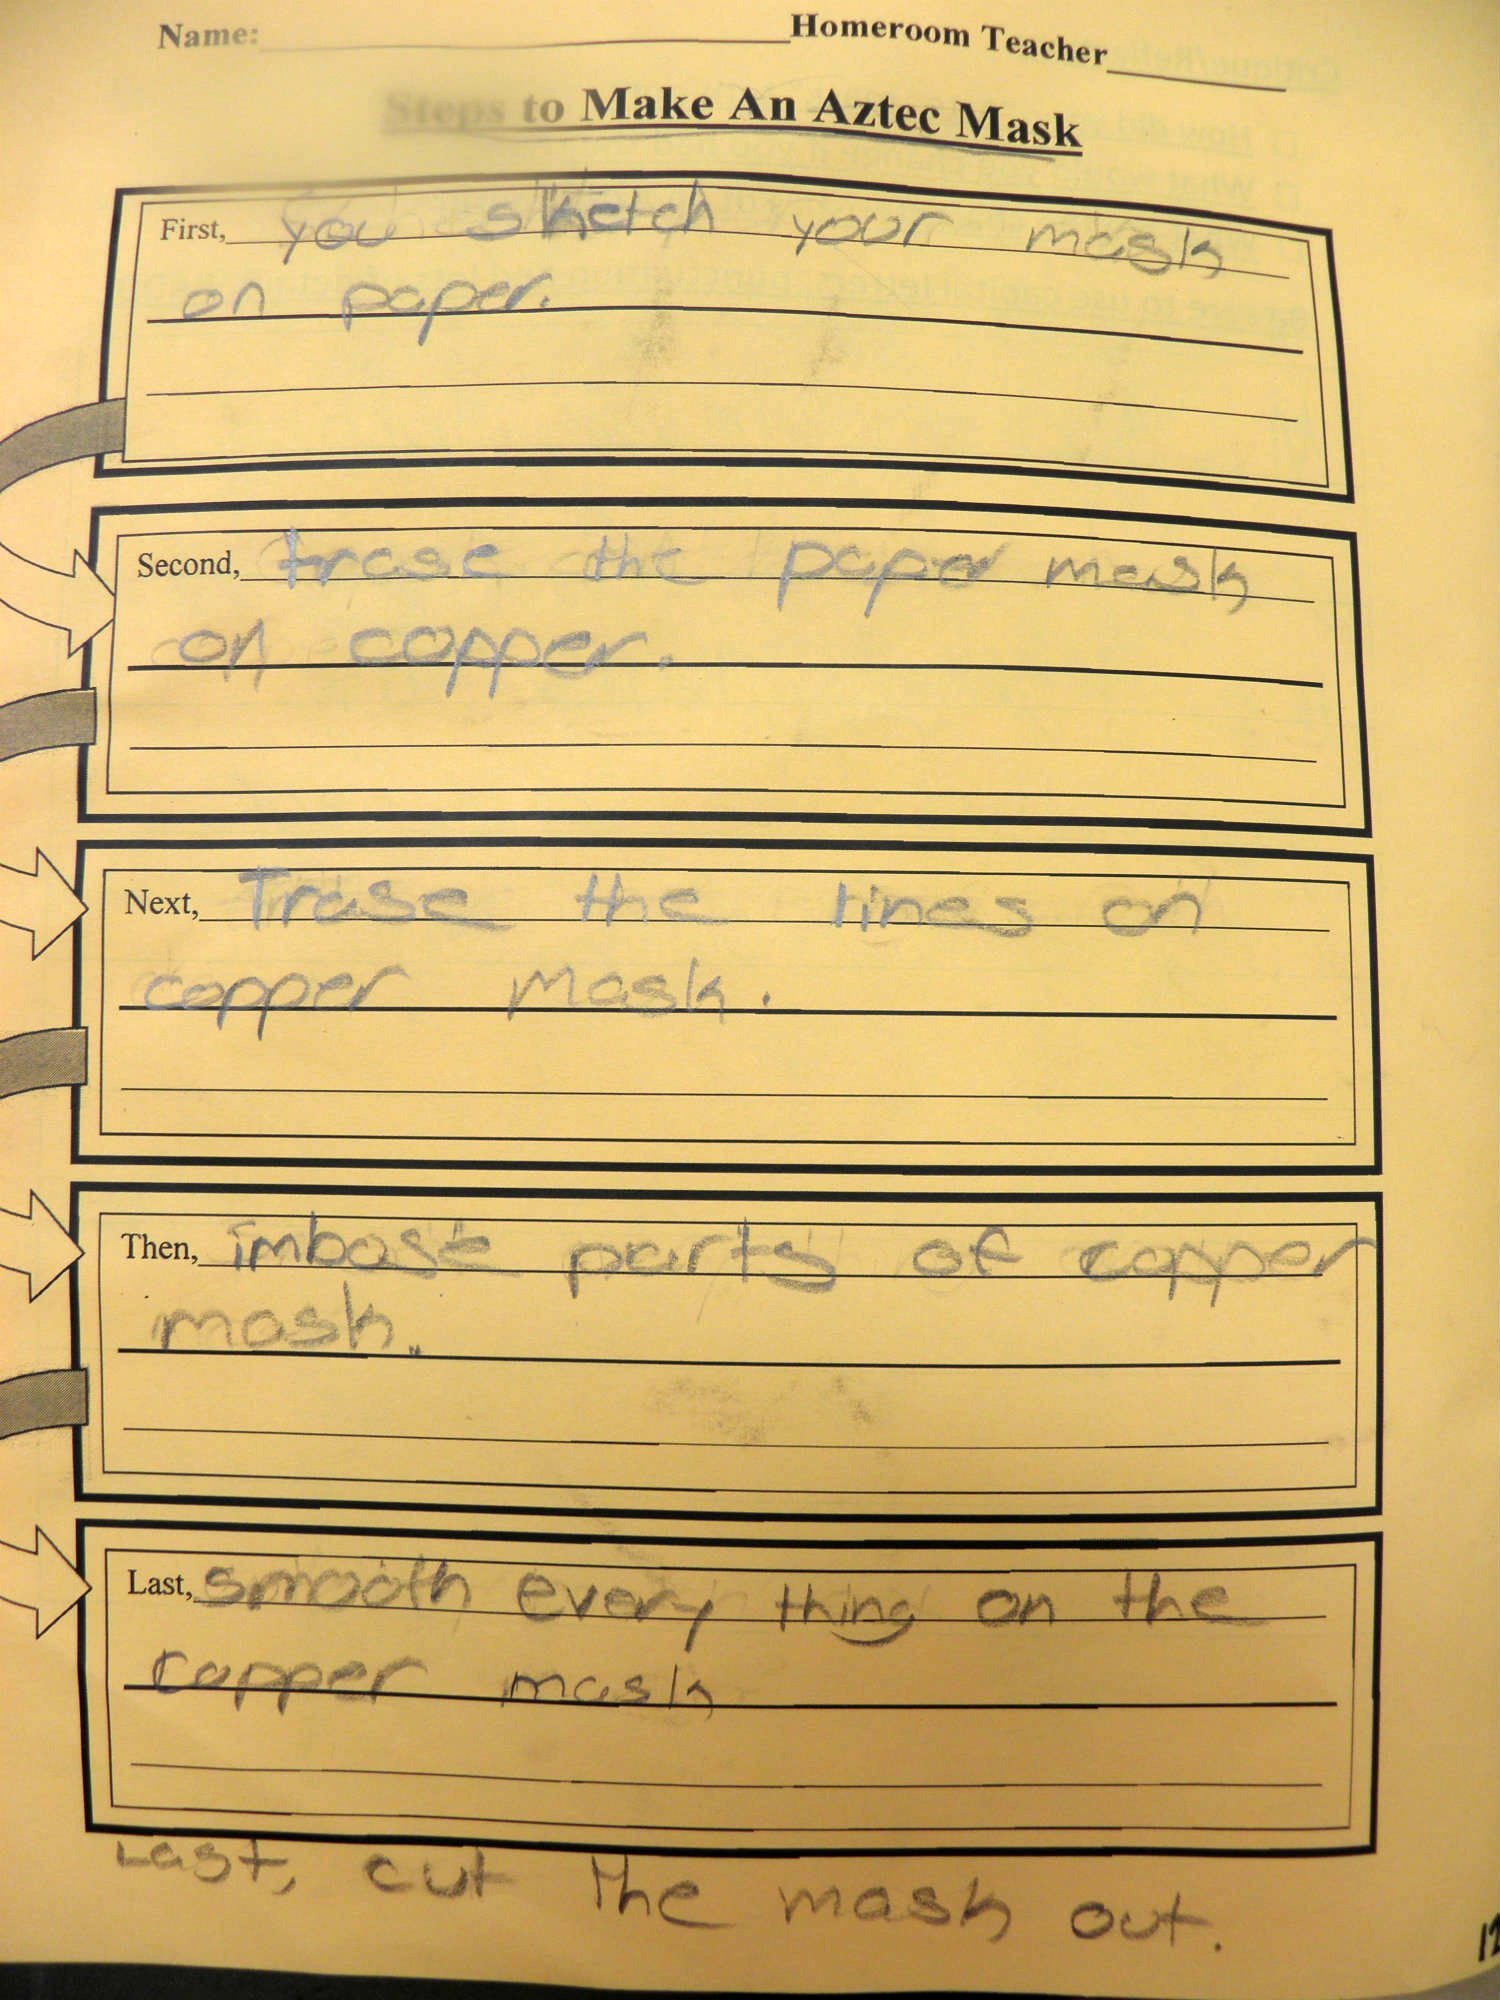 Name: Homeroom Teacher
Steps to Make An Aztec Mask
First, you sketch your mask
on paper.
Second, trase the paper mask
on copper.
Next, Trase the lines on
copper mask.
Then, imbose parts of copper
mask.
Last, smooth every thing on the
copper mask
Last, cut the mask out.
12